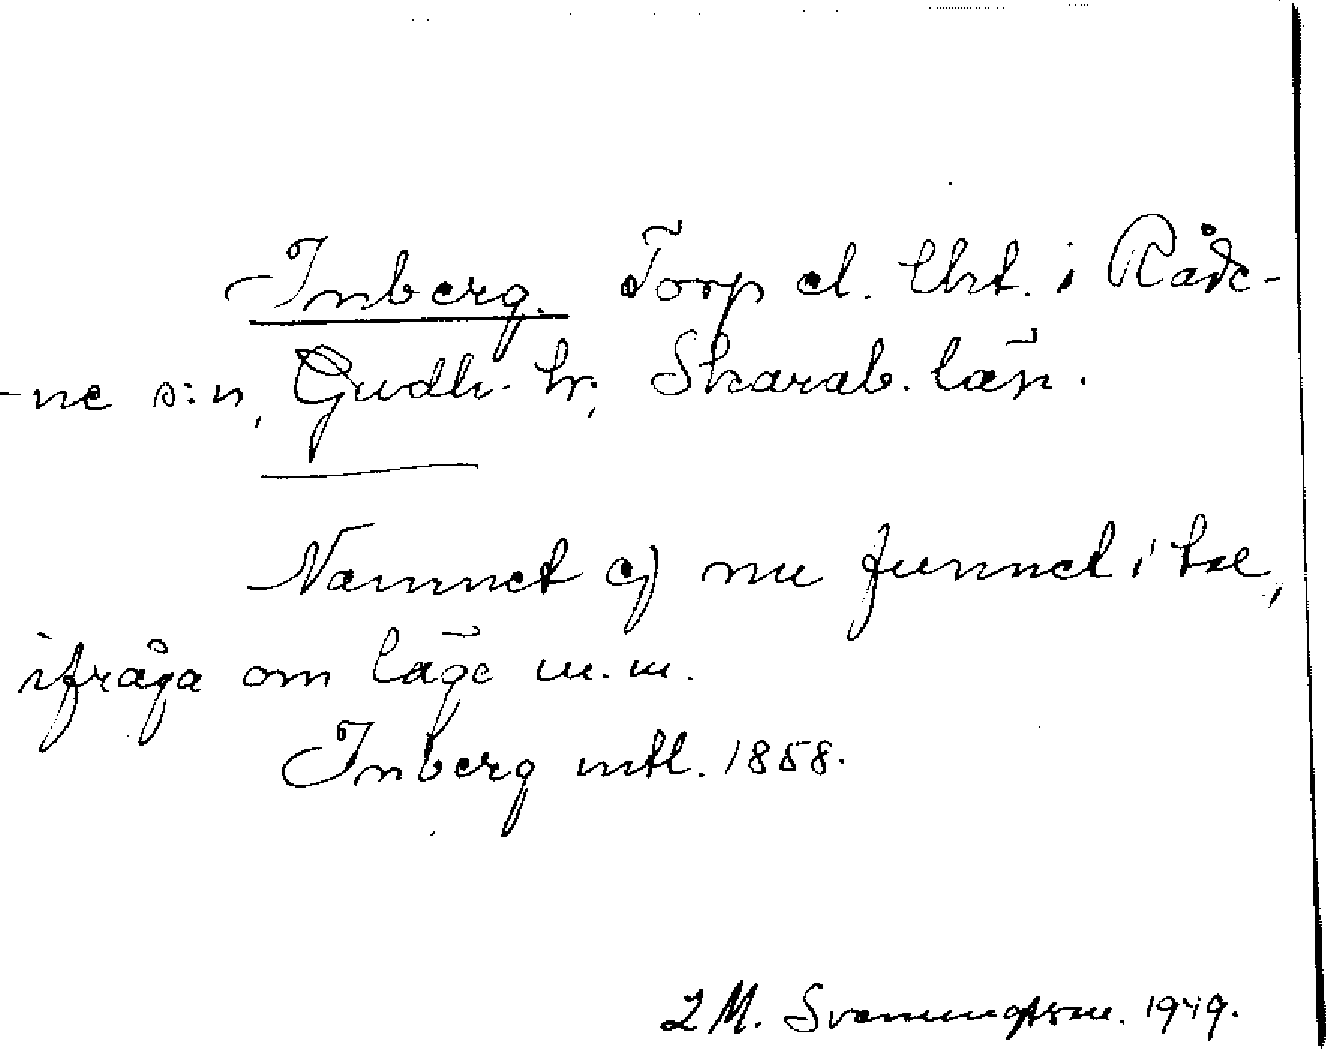 Inberg. Torp el. lht. i Råde-
-ne s:n, Gudh. hr, Skarab. län.
Namnet ej nu funnet i bse,
ifråga om läge m.m.
Inberg mtl. 1858.
L M. Svenungsson. 1949.